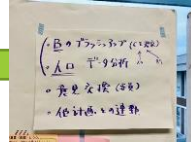 ・Bのブラッシュアップ
・人口 データ分析
・意見交換(全員)
・他計画との連動